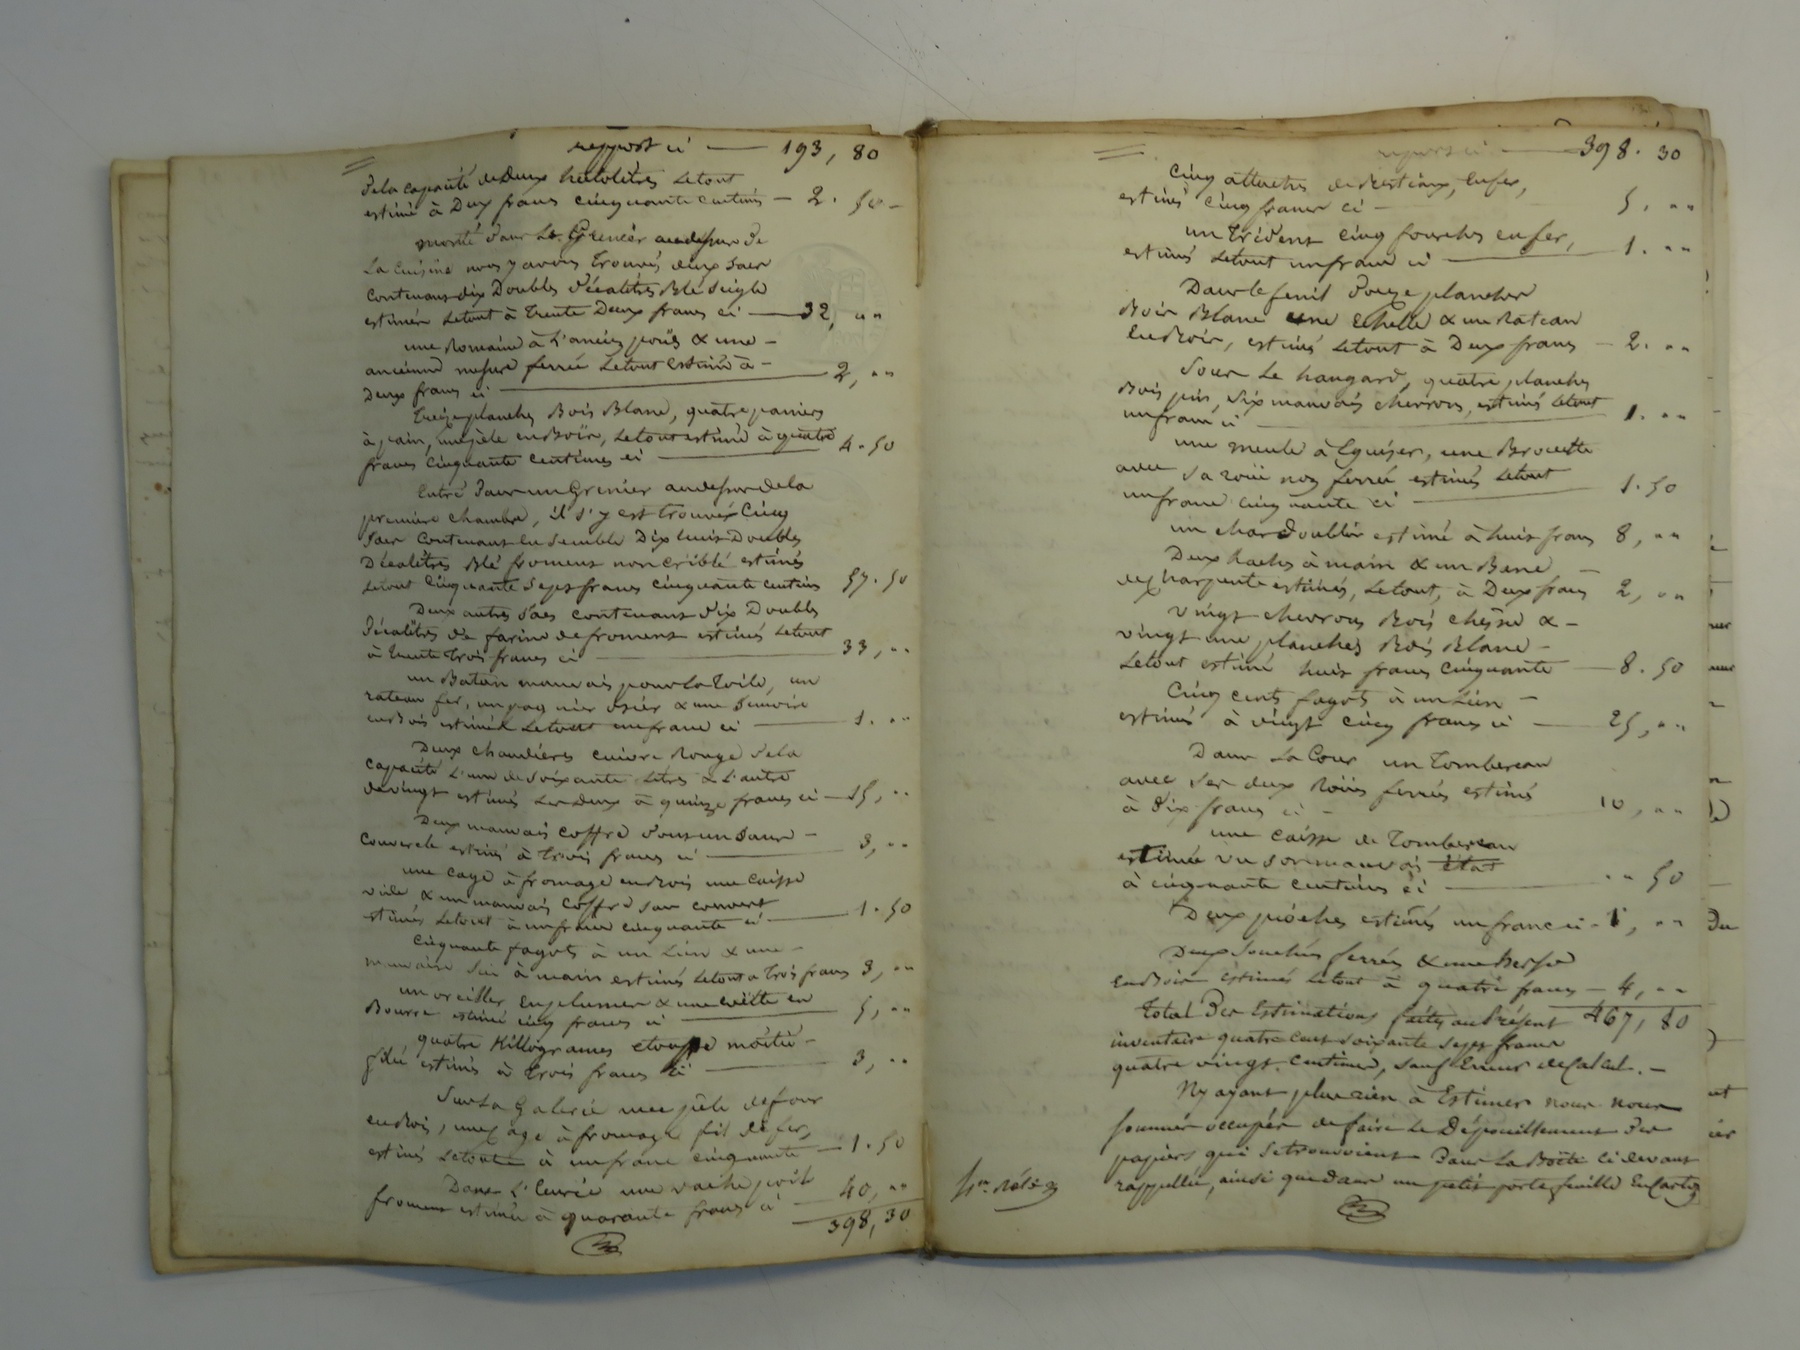 rapport ci — 193, 80
de la capacité de deux hectolitres le tout
estimé à Deux francs cinquante centimes — 2. 50 -
monté dans Le Grenier au dessus de
La Cuisine nous y avons trouvés deux sacs
contenant dix Doubles décalitres Blé Seigle
estimés le tout à trente Deux francs ci — 32, ""
une Romaine à l'ancien poids & une -
ancienne mesure ferrée le tout estimé à -
Deux francs ci — 2, ""
treize planches Bois Blanc, quatre paniers
à pain, une pèle en Bois, le tout estimé à quatre
francs cinquante centimes ci — 4. 50
Entré dans un Grenier au dessus de la
première chambre, il s'y est trouvés Cinq
Sacs contenant Ensemble Dix huit Doubles
Décalitres Blé froment non criblé estimés
le tout Cinquante Sept francs cinquante centimes 57. 50
Deux autres Sacs contenant dix Doubles
Décalitres de farine de froment estimés le tout
à trente trois francs ci — 33, ""
un mauvais pour la toile, un
rateau fer, un panier osier & une
en Bois estimés le tout un franc ci — 1. ""
Deux chaudières cuivre Rouge de la
capacité L'une de soixante Litres & L'autre
de vingt estimés Les deux à quinze francs ci — 15, ""
Deux mauvais coffre dont un Sans -
Couvercle estimés à trois francs ci — 3, ""
une cage à fromage en Bois une caisse
vide & un mauvais coffre sans couvert
estimés le tout à un franc cinquante ci — 1. 50
Cinquante fagots à un Lien & une -
mauvaise Scie à main estimés le tout à trois francs 3, ""
un oreiller En plumes & une en
Bourre estimé cinq francs ci — 5, ""
quatre Killogrames etouppe moitié -
filée estimés à trois francs ci — 3, ""
Sur La Galerie une pèle de four
en Bois, une cage à fromage fil de fer,
estimés le tout à un franc cinquante — 1. 50
Dans L'Ecurie une vache poil
froment estimée à quarante francs ci — 40, ""
398, 30
report ci — 398. 30
Cinq attaches de Bestiaux, En fer,
estimés cinq francs ci — 5, ""
un trident cinq fourches en fer,
estimés le tout un franc ci — 1. ""
Dans le fenil douze planches
Bois Blanc une Echelle & un Rateau
En Bois, estimés le tout à Deux francs — 2. ""
Sous Le hangard, quatre planches
Bois pin, Six mauvais chevrons, estimés le tout
un franc ci — 1. ""
une meule à Eguiser, une Brouette
avec sa roüe non ferrée estimés le tout
un franc cinquante ci — 1. 50
un char estimé à huit francs 8, ""
Deux haches à main & un Banc -
de charpente estimés, le tout, à Deux francs 2, ""
vingt chevrons Bois chesne & -
vingt une planches Bois Blanc -
le tout estimé huit francs Cinquante — 8. 50
Cinq cents fagots à un Lien -
estimés à vingt cinq francs ci — 25, ""
Dans La Cour un tombereau
avec ses deux Roües ferrées estimés
à dix francs ci - 10, ""
une caisse de tombereau
estimée vu son mauvais état
à cinquante centimes ci — "" 50
Deux pioches estimés un franc ci - 1, ""
Deux ferrés & une herse
en Bois estimés le tout à quatre francs — 4, ""
total Des Estimations faites au Présent 467, 80
inventaire quatre cent soixante sept francs
quatre vingt Centimes, sauf Erreur de Calcul. -
N'y ayant plus rien à Estimer nous nous
sommes occupés de faire Le Dépouillement Des
papiers qui Se trouvoient Dans La Boëte Ci devant
rappellée, ainsi que dans un petit porte feuille En Carton